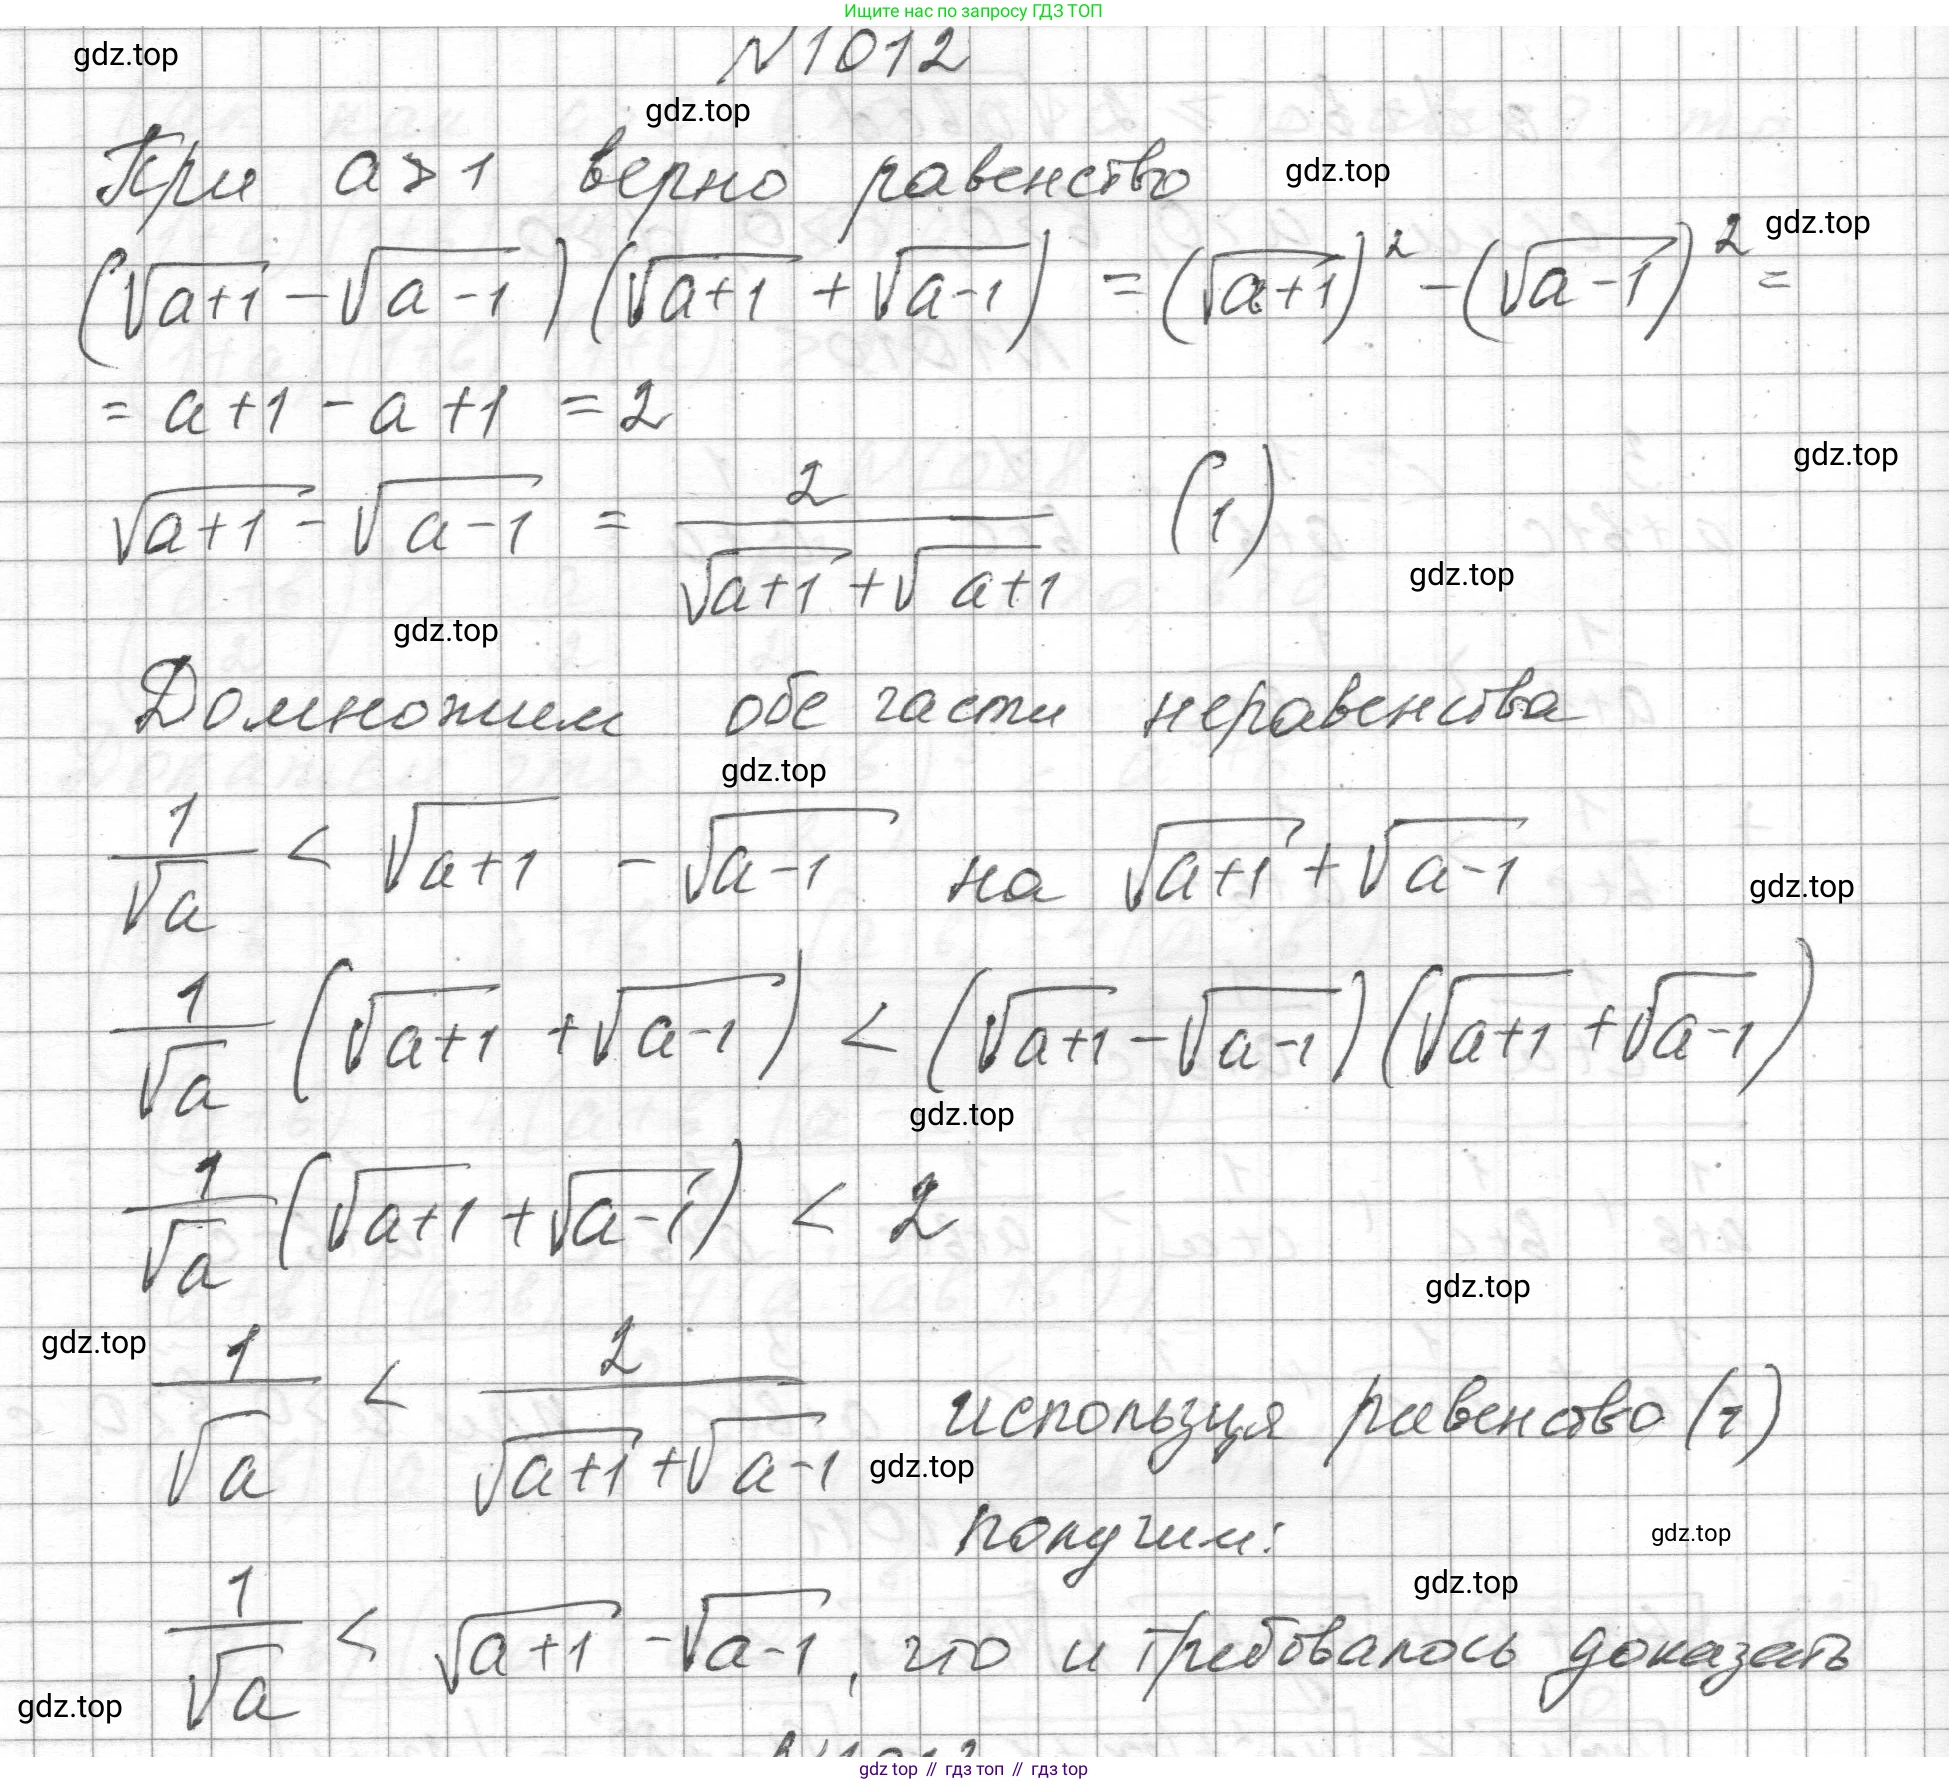 Ищите нас по запросу ГДЗ ТОП
gdz.top
N1012
gdz.top
При a > 1 верно равенство
gdz.top
gdz.top
(√(a+1) − √(a−1)) (√(a+1) + √(a−1)) = (√(a+1))² − (√(a−1))² =
= a+1 − a+1 = 2
gdz.top
√(a+1) − √(a−1) = 2/(√(a+1) + √(a+1)) (1)
gdz.top
gdz.top
Домножим обе части неравенства
gdz.top
1/√a < √(a+1) − √(a−1) на √(a+1) + √(a−1)
gdz.top
1/√a (√(a+1) + √(a−1)) < (√(a+1) − √(a−1)) (√(a+1) + √(a−1))
gdz.top
1/√a (√(a+1) + √(a−1)) < 2
gdz.top
gdz.top
1/√a < 2/(√(a+1) + √(a−1)) используя равенство (1)
gdz.top
получим:
gdz.top
gdz.top
1/√a < √(a+1) − √(a−1), что и требовалось доказать
gdz.top
gdz top // гдз топ // гдз top